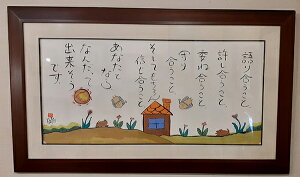 語り合うこと
許し合うこと、
委ね合うこと
守り
合うこと
そして
信じ合うこと
あなたと
なら
なんだって
出来そう
です